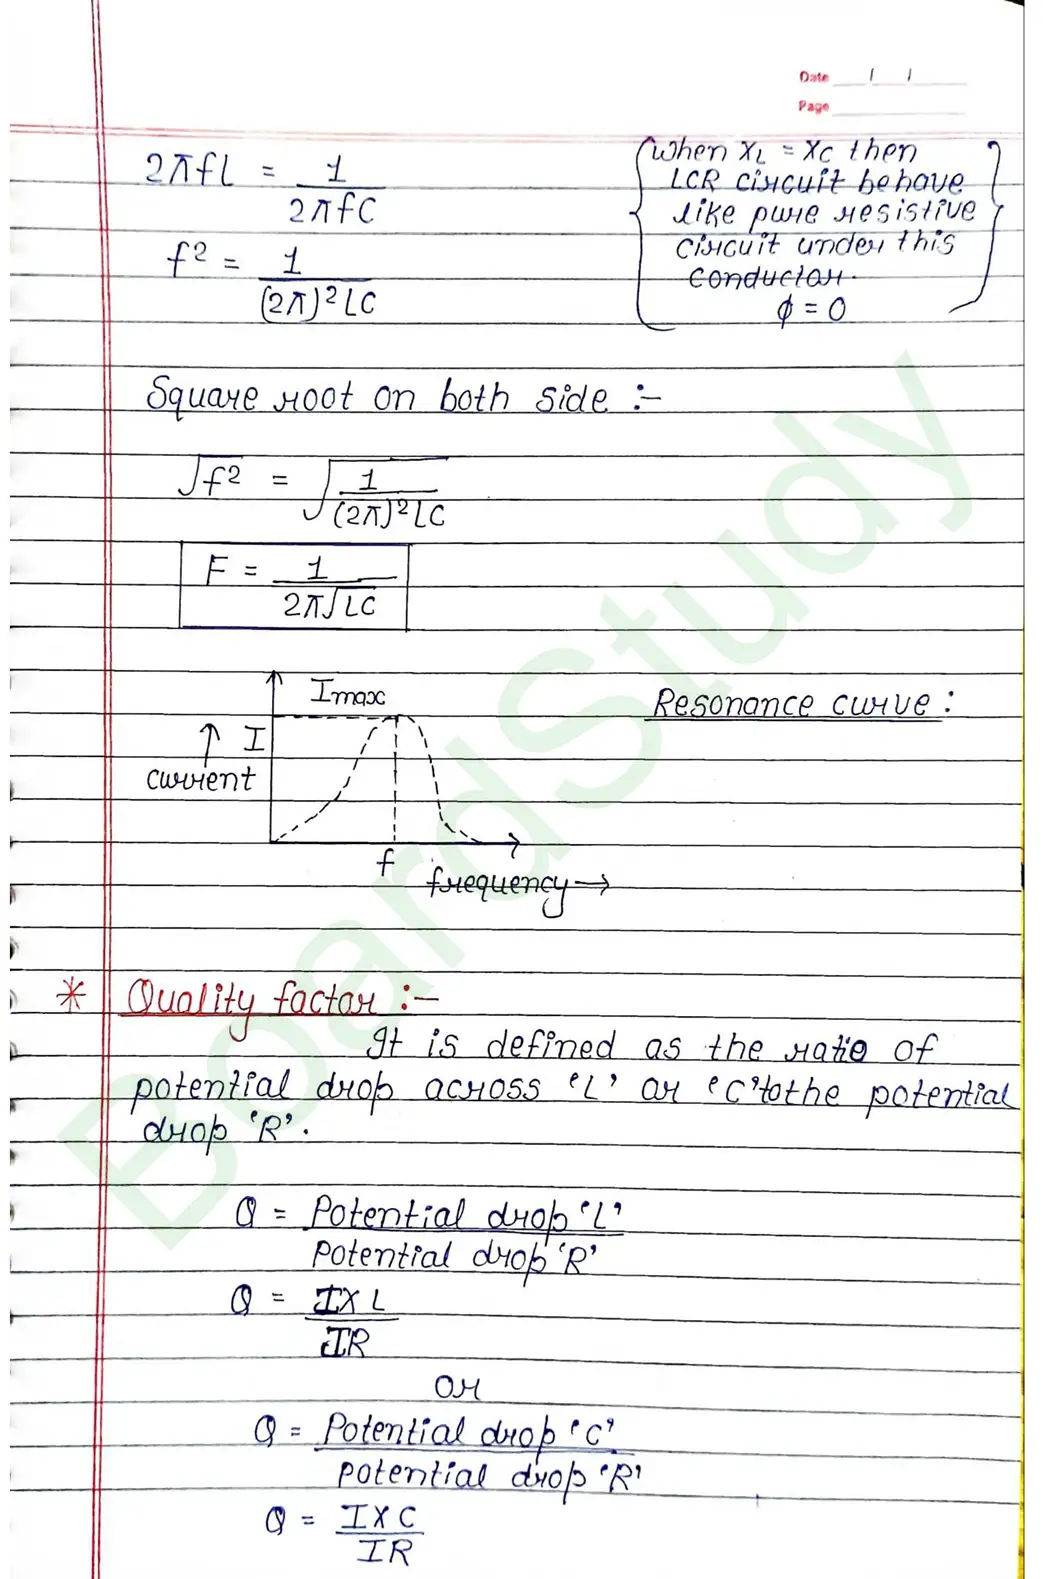 Date / /
Page
2πfL = 1
2πfC
f² = 1
(2π)²LC
When XL = XC then
LCR circuit behave
like pure resistive
circuit under this
conductor.
φ = 0
Square root on both side :-
√f² = √1
(2π)²LC
F = 1
2π√LC
Imax
↑ I
current
f
frequency →
Resonance curve :
* Quality factor :-
It is defined as the ratio of
potential drop across 'L' or 'C' to the potential
drop 'R'.
Q = Potential drop 'L'
Potential drop 'R'
Q = IXL
IR
or
Q = Potential drop 'C'
potential drop 'R'
Q = IXC
IR
BoardStudy